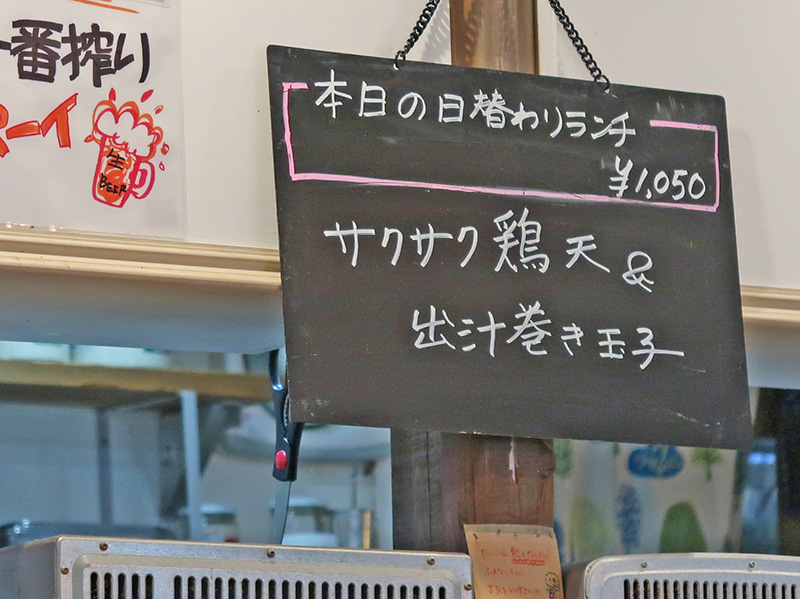 一番搾り
ーイ
生
BEER
本日の日替わりランチ
¥1,050
サクサク鶏天&
出汁巻き玉子